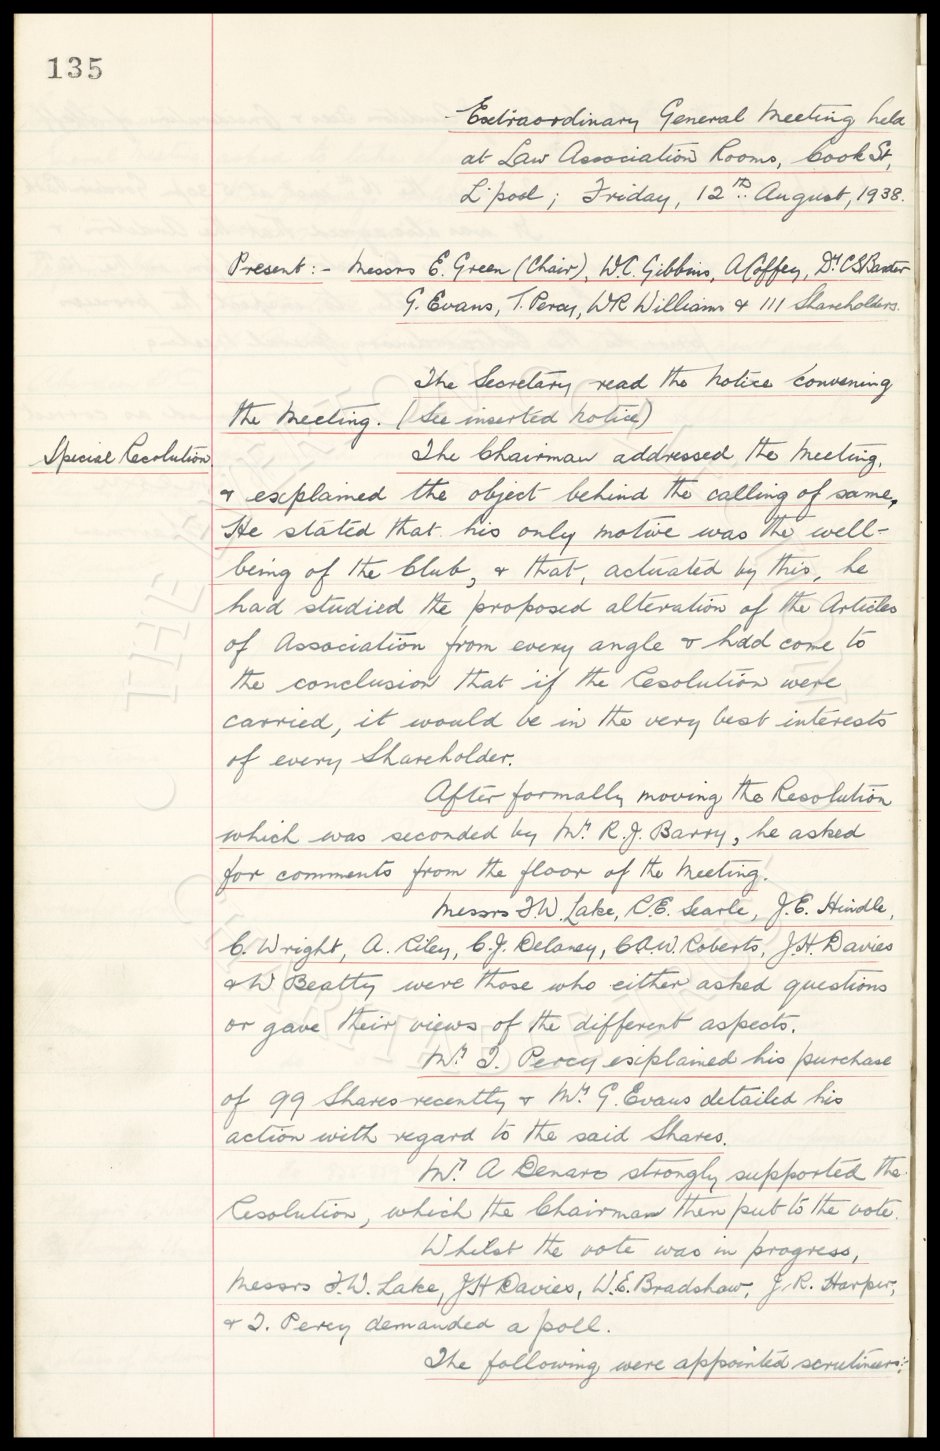 135
Extraordinary General Meeting held
at Law Association Rooms, Cook St,
L'pool; Friday, 12th August, 1938.
Present:- Messrs E. Green (Chair), W.C. Gibbins, A Coffey, Dr CS Baxter
G. Evans, T. Percy, WR Williams & 111 Shareholders.
The Secretary read the notice convening
the Meeting. (See inserted notice)
Special Resolution.
The Chairman addressed the Meeting,
& explained the object behind the calling of same,
He stated that his only motive was the well-
being of the Club, & that, actuated by this, he
had studied the proposed alteration of the Articles
of Association from every angle & had come to
the conclusion that if the Resolution were
carried, it would be in the very best interests
of every Shareholder.
After formally moving the Resolution
which was seconded by Mr. R.J. Barry, he asked
for comments from the floor of the Meeting.
Messrs F.W. Lake, C.E. Searle, J.E. Hindle,
C. Wright, A. Riley, C.J. Delaney, C.A.W. Roberts, J.H. Davies
& W Beatty were those who either asked questions
or gave their views of the different aspects.
Mr. T. Percy explained his purchase
of 99 Shares recently & Mr G. Evans detailed his
action with regard to the said Shares.
Mr. A Denaro strongly supported the
Resolution, which the Chairman then put to the vote.
Whilst the vote was in progress,
Messrs F.W. Lake, JH Davies, W.E. Bradshaw, J.R. Harper,
& T. Percy demanded a poll.
The following were appointed scrutineers:-